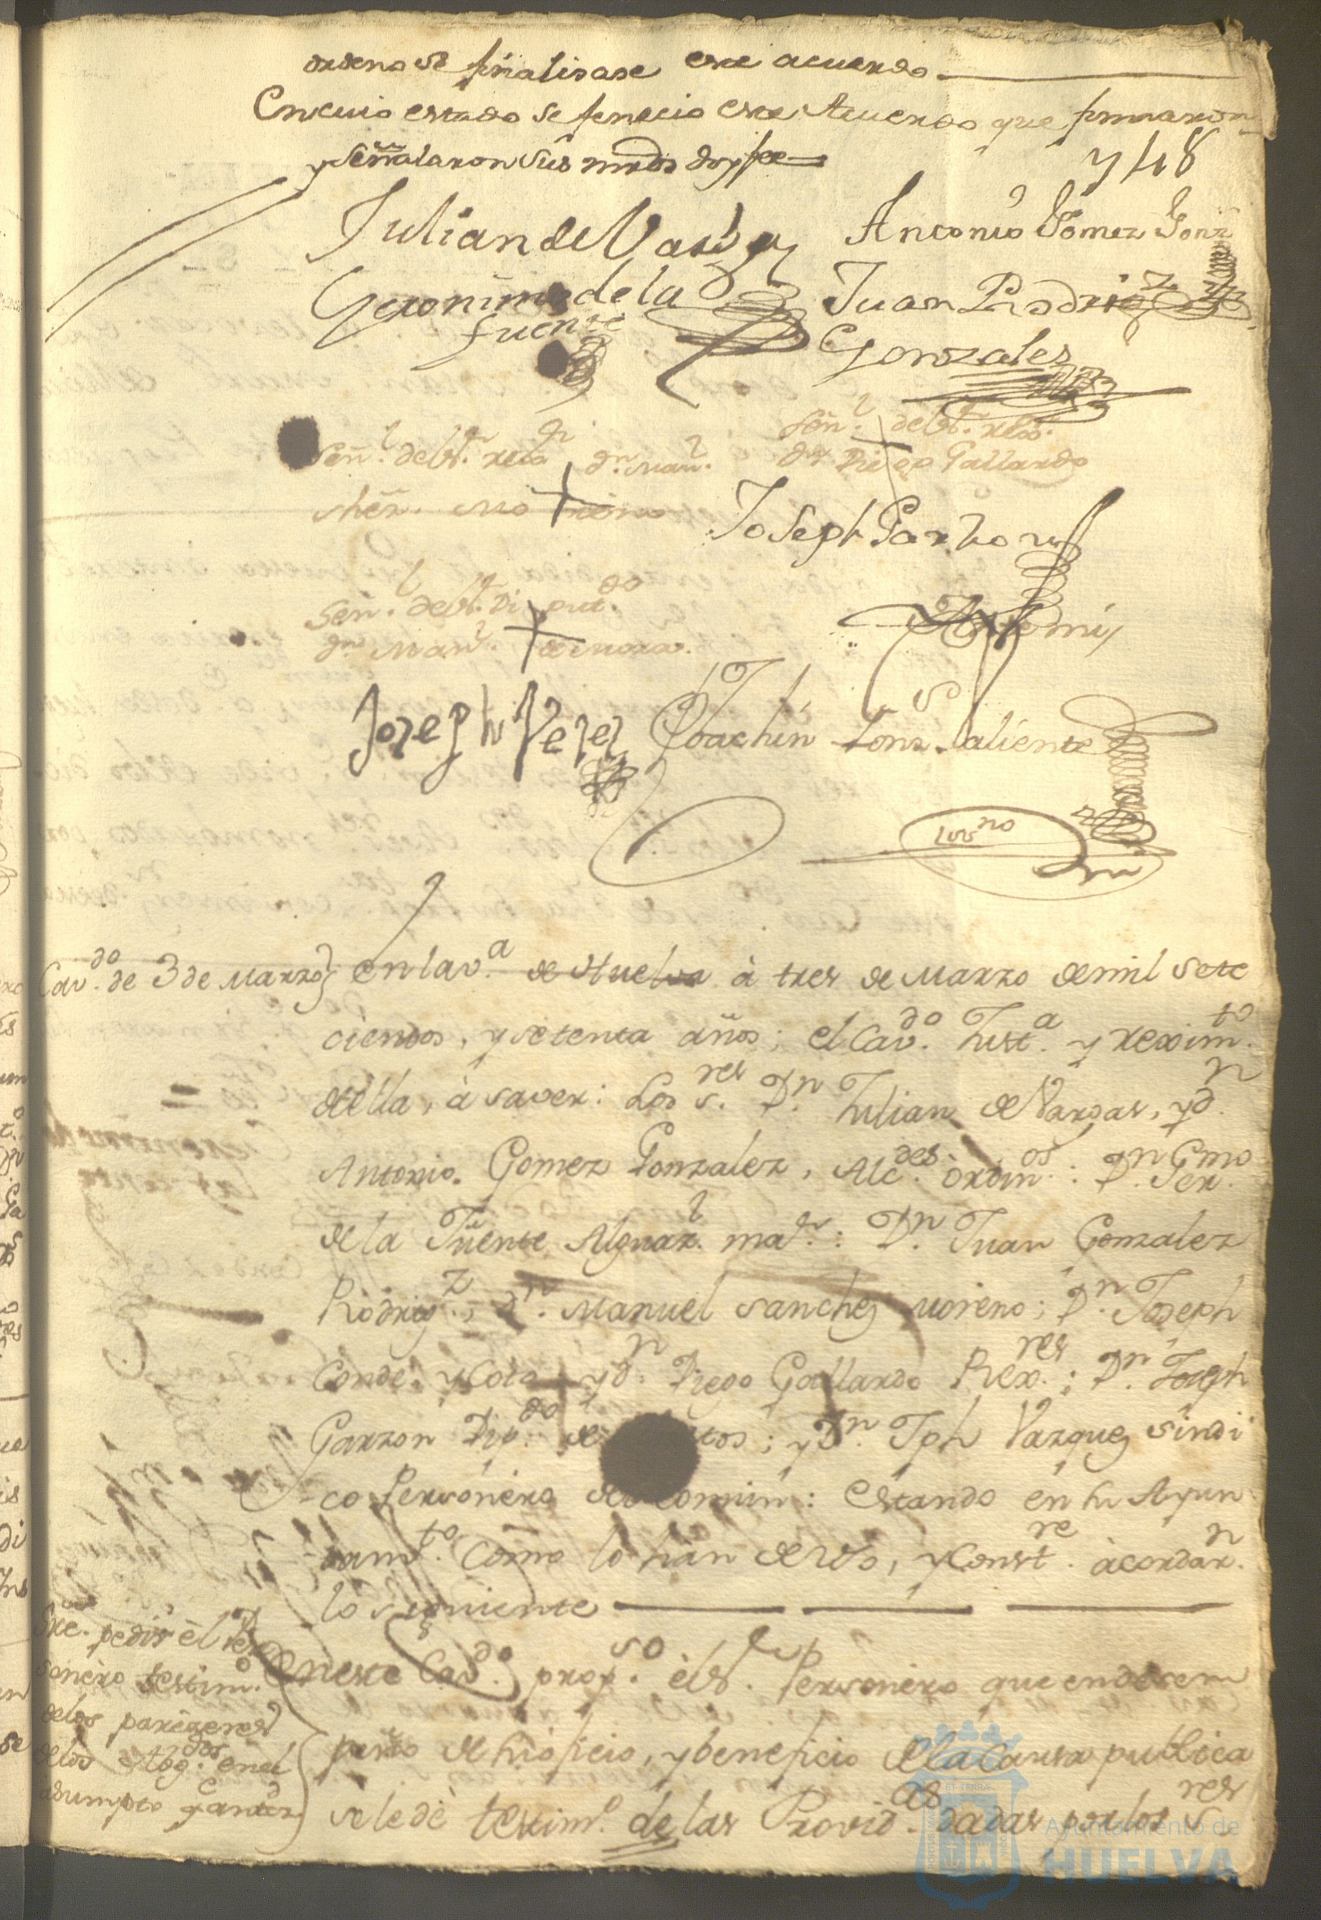 ordeno se finalisase este acuerdo
En cuio estado se fenecio este Acuerdo que firmaron
y señalaron sus mrds doy fee
y 48
Julian de Vargas Antonio Gomez Gonz
Geronimo de la fuente
Juan Rodrigz Gonzales
Señl. del Sr. rexor dn. Manl. Shez. Moreno
Señl. del Sr. rexor. dn Diego Gallardo
Joseph Garzon
Señl. del Sr. Diputdo dn Manl. de Mora
Joseph Perez Joachin Gonz Valiente
Cavdo. de 3 de Marzo
en la va. de Huelva à tres de Marzo de mil sete
cientos, y setenta años; el Cavdo. Justa. y reximto.
de ella, à saver: Los sres. Dn. Julian de Vargas, y dn.
Antonio Gomez Gonzalez, Alcdes. ordinos: Dn. Germo.
de la Fuente Alguazl. mar: Dn. Juan Gonzalez
Rodrigz., Dn. Manuel Sanchez Moreno; Dn. Joseph
Conde y Coto y dn. Diego Gallardo Rexres.; Dn. Joseph
Garzon Dipdo. de tos; y Dn. Jph Vazquez Sindi
co Personero del Comun: estando en su Ayun
tamto. como lo han de uso, y Constre. àcordarn.
lo siguiente
Sre. pedir èl Per
sonèro testimo.
de los pareceres
de los Abogdos. en el
asumpto
En este Cavdo. propso. èl Sr. Personèro que en desem
peño de su oficio, y beneficio de la Causa publica
se le dè testimo. de las Providas. dadas por los sres
Ayuntamiento de
HUELVA